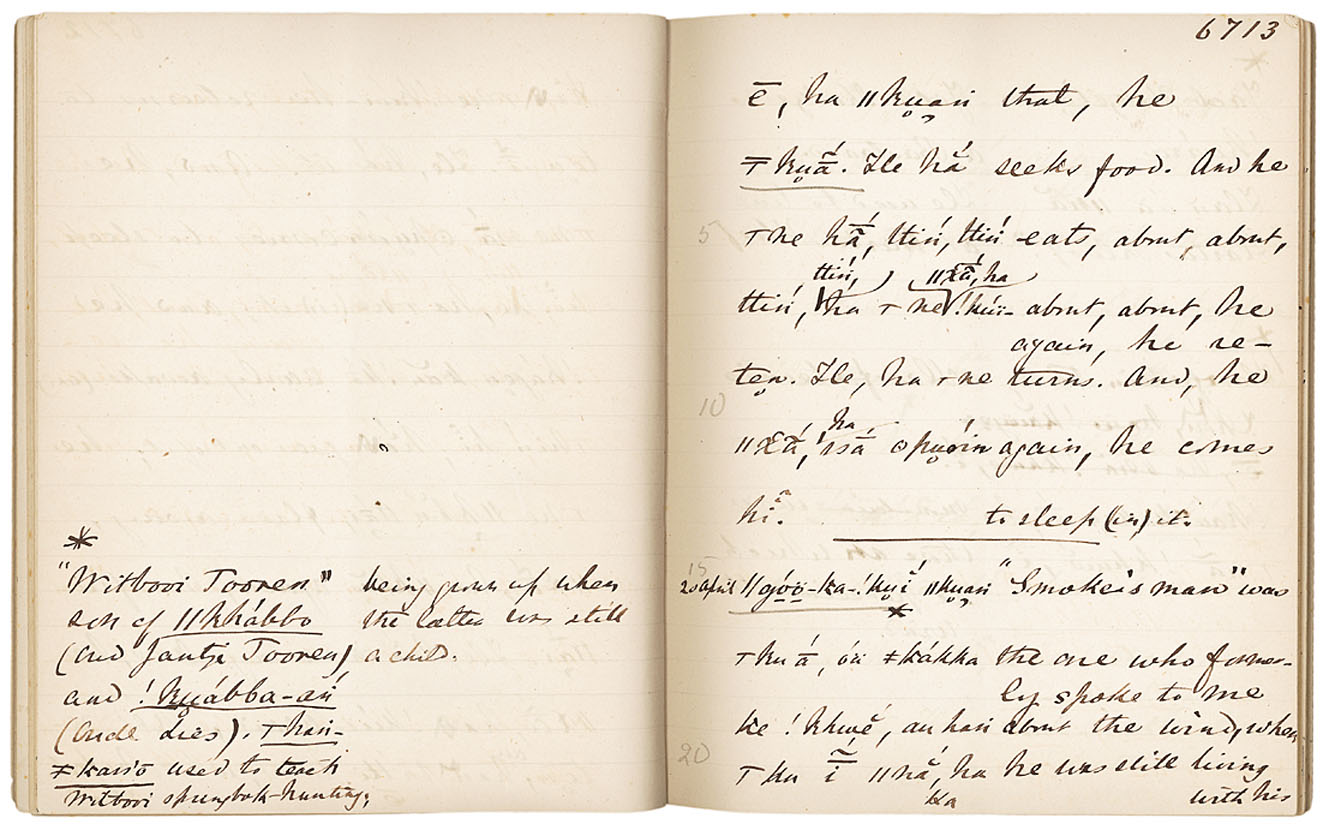 *
"Witbooi Tooren"
son of ||khábbo
(Oud Jantje Tooren)
and !kuábba-añ
(Oude Lies). ⊤han-
ǂkass'ō used to teach
Witbooi springbok-hunting;
being grown up when
the latter was still
a child.
6713
ē, ha ||ku̥an̄ that, he
⊤ku̥ā́. Ile hắ seeks food. And he
5 ⊤ne hā́, ttiń, ttiń eats, about, about,
ttiń, ||χā́, ha
ttiń, ha ⊤ne !kúï- about, about, he
again, he re-
ten. Ile, ha ⊤ne turns. And, he
10
ha
||χā́, ssā́ ʘpu̥óin again, he comes
hĩ. to sleep (in) it.
15
20 April ||góö-ka-!ku̥ĭ́ ||ku̥an̄ "Smoke's man" was
*
⊤ku ā́, óä ǂkákka the one who former-
ly spoke to me
ke !khwĕ́, au han about the wind, when
20 ⊤ka ī̃́ ||nắ, ha he was still living
ka with his